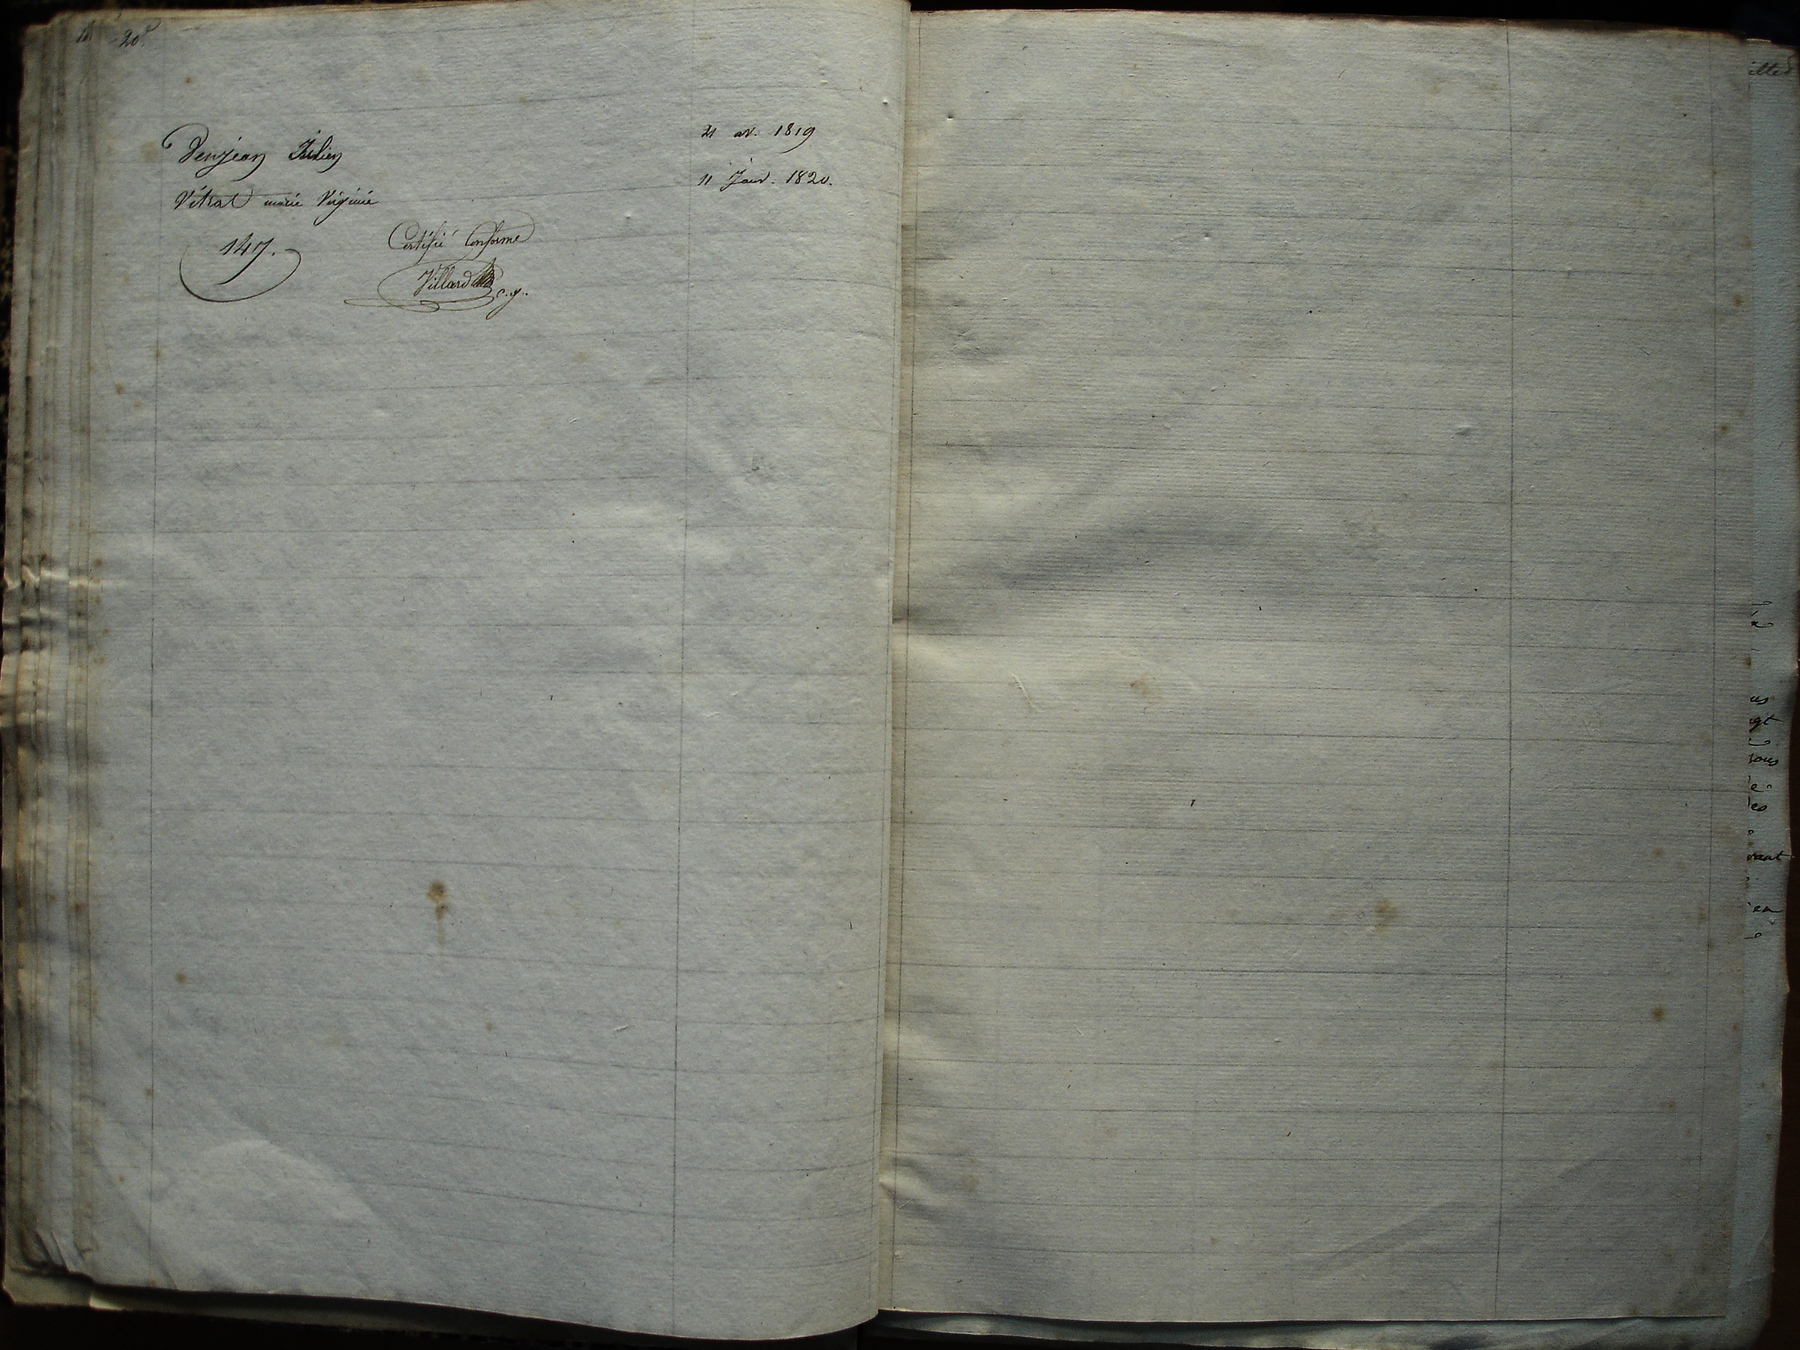 20
21 av. 1819
Julien
11 Janv. 1820.
Vitral marie Virginie
147.
Certifié Conforme
Villard